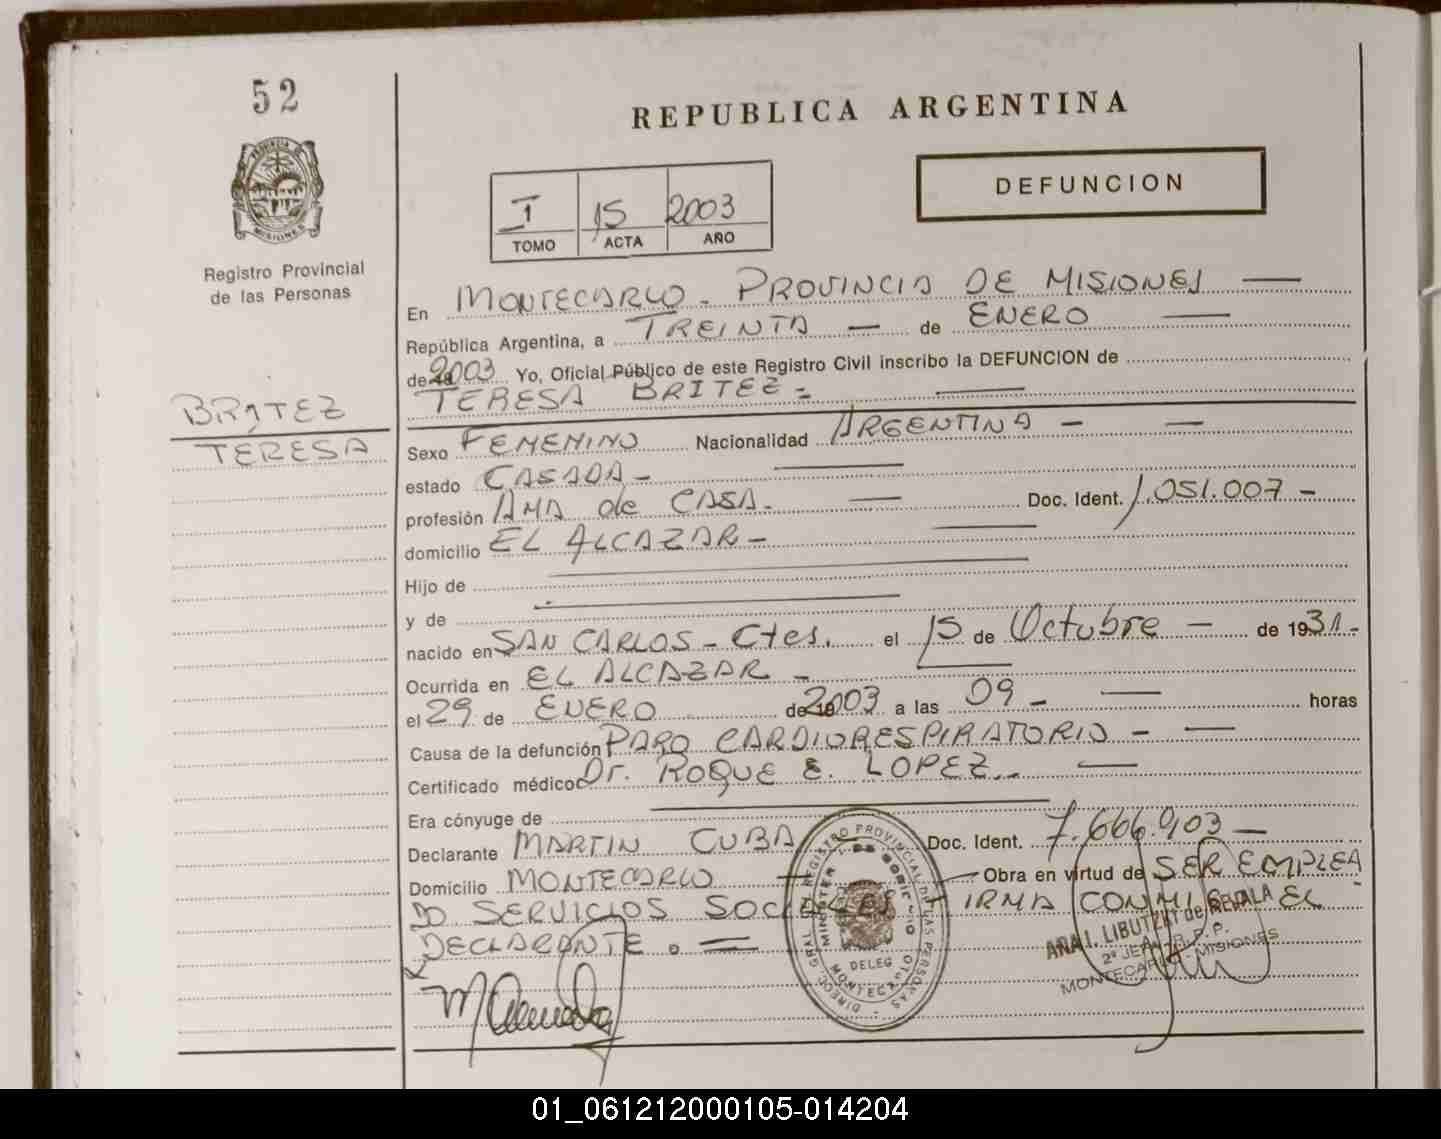 52
PROVINCIA DE
MISIONES
Registro Provincial
de las Personas
BRITEZ
TERESA
REPUBLICA ARGENTINA
I 15 2003
TOMO ACTA AÑO
DEFUNCION
En MONTECARLO - PROVINCIA DE MISIONES —
República Argentina, a TREINTA — de ENERO —
de 2003 Yo, Oficial Público de este Registro Civil inscribo la DEFUNCION de
TERESA BRITEZ - —
Sexo FEMENINO Nacionalidad ARGENTINA - —
estado CASADA - —
profesión AMA de CASA - — Doc. Ident. 1.051.007 -
domicilio EL ALCAZAR - —
Hijo de —
y de —
nacido en SAN CARLOS - Ctes. el 15 de Octubre — de 1931 -
Ocurrida en EL ALCAZAR - —
el 29 de ENERO de 2003 a las 09 - — horas
Causa de la defunción PARO CARDIORESPIRATORIO - —
Certificado médico Dr. ROQUE E. LOPEZ - —
Era cónyuge de —
Declarante MARTIN CUBA — Doc. Ident. 7.666.903 —
Domicilio MONTECARLO — Obra en virtud de SER EMPLEA
DO SERVICIOS SOCIALES FIRMA CONMIGO EL
DECLARANTE. =
DIREC. GRAL. REGISTRO PROVINCIAL DE LAS PERSONAS
DELEG
MONTECARLO
ANA I. LIBUTZKI de
MONTECARLO - MISIONES
01_061212000105-014204